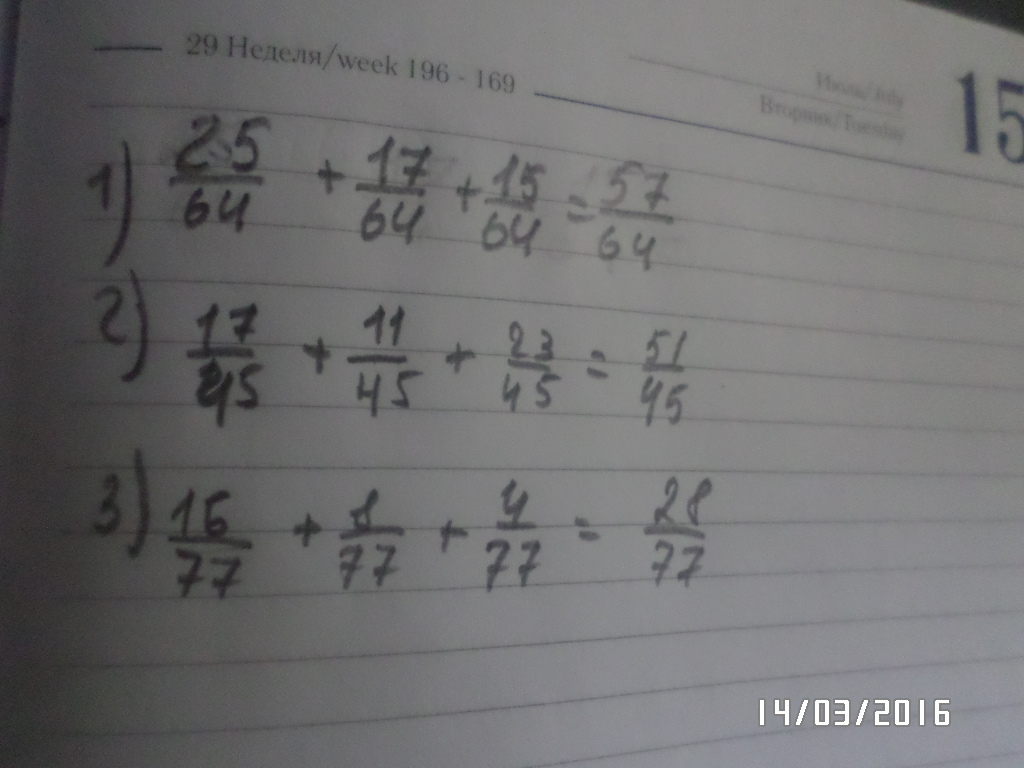 29 Неделя/week 196 - 169
Июль/July
Вторник/Tuesday
15
1) 25/64 + 17/64 + 15/64 = 57/64
2) 17/45 + 11/45 + 23/45 = 51/45
3) 16/77 + 8/77 + 4/77 = 28/77
14/03/2016